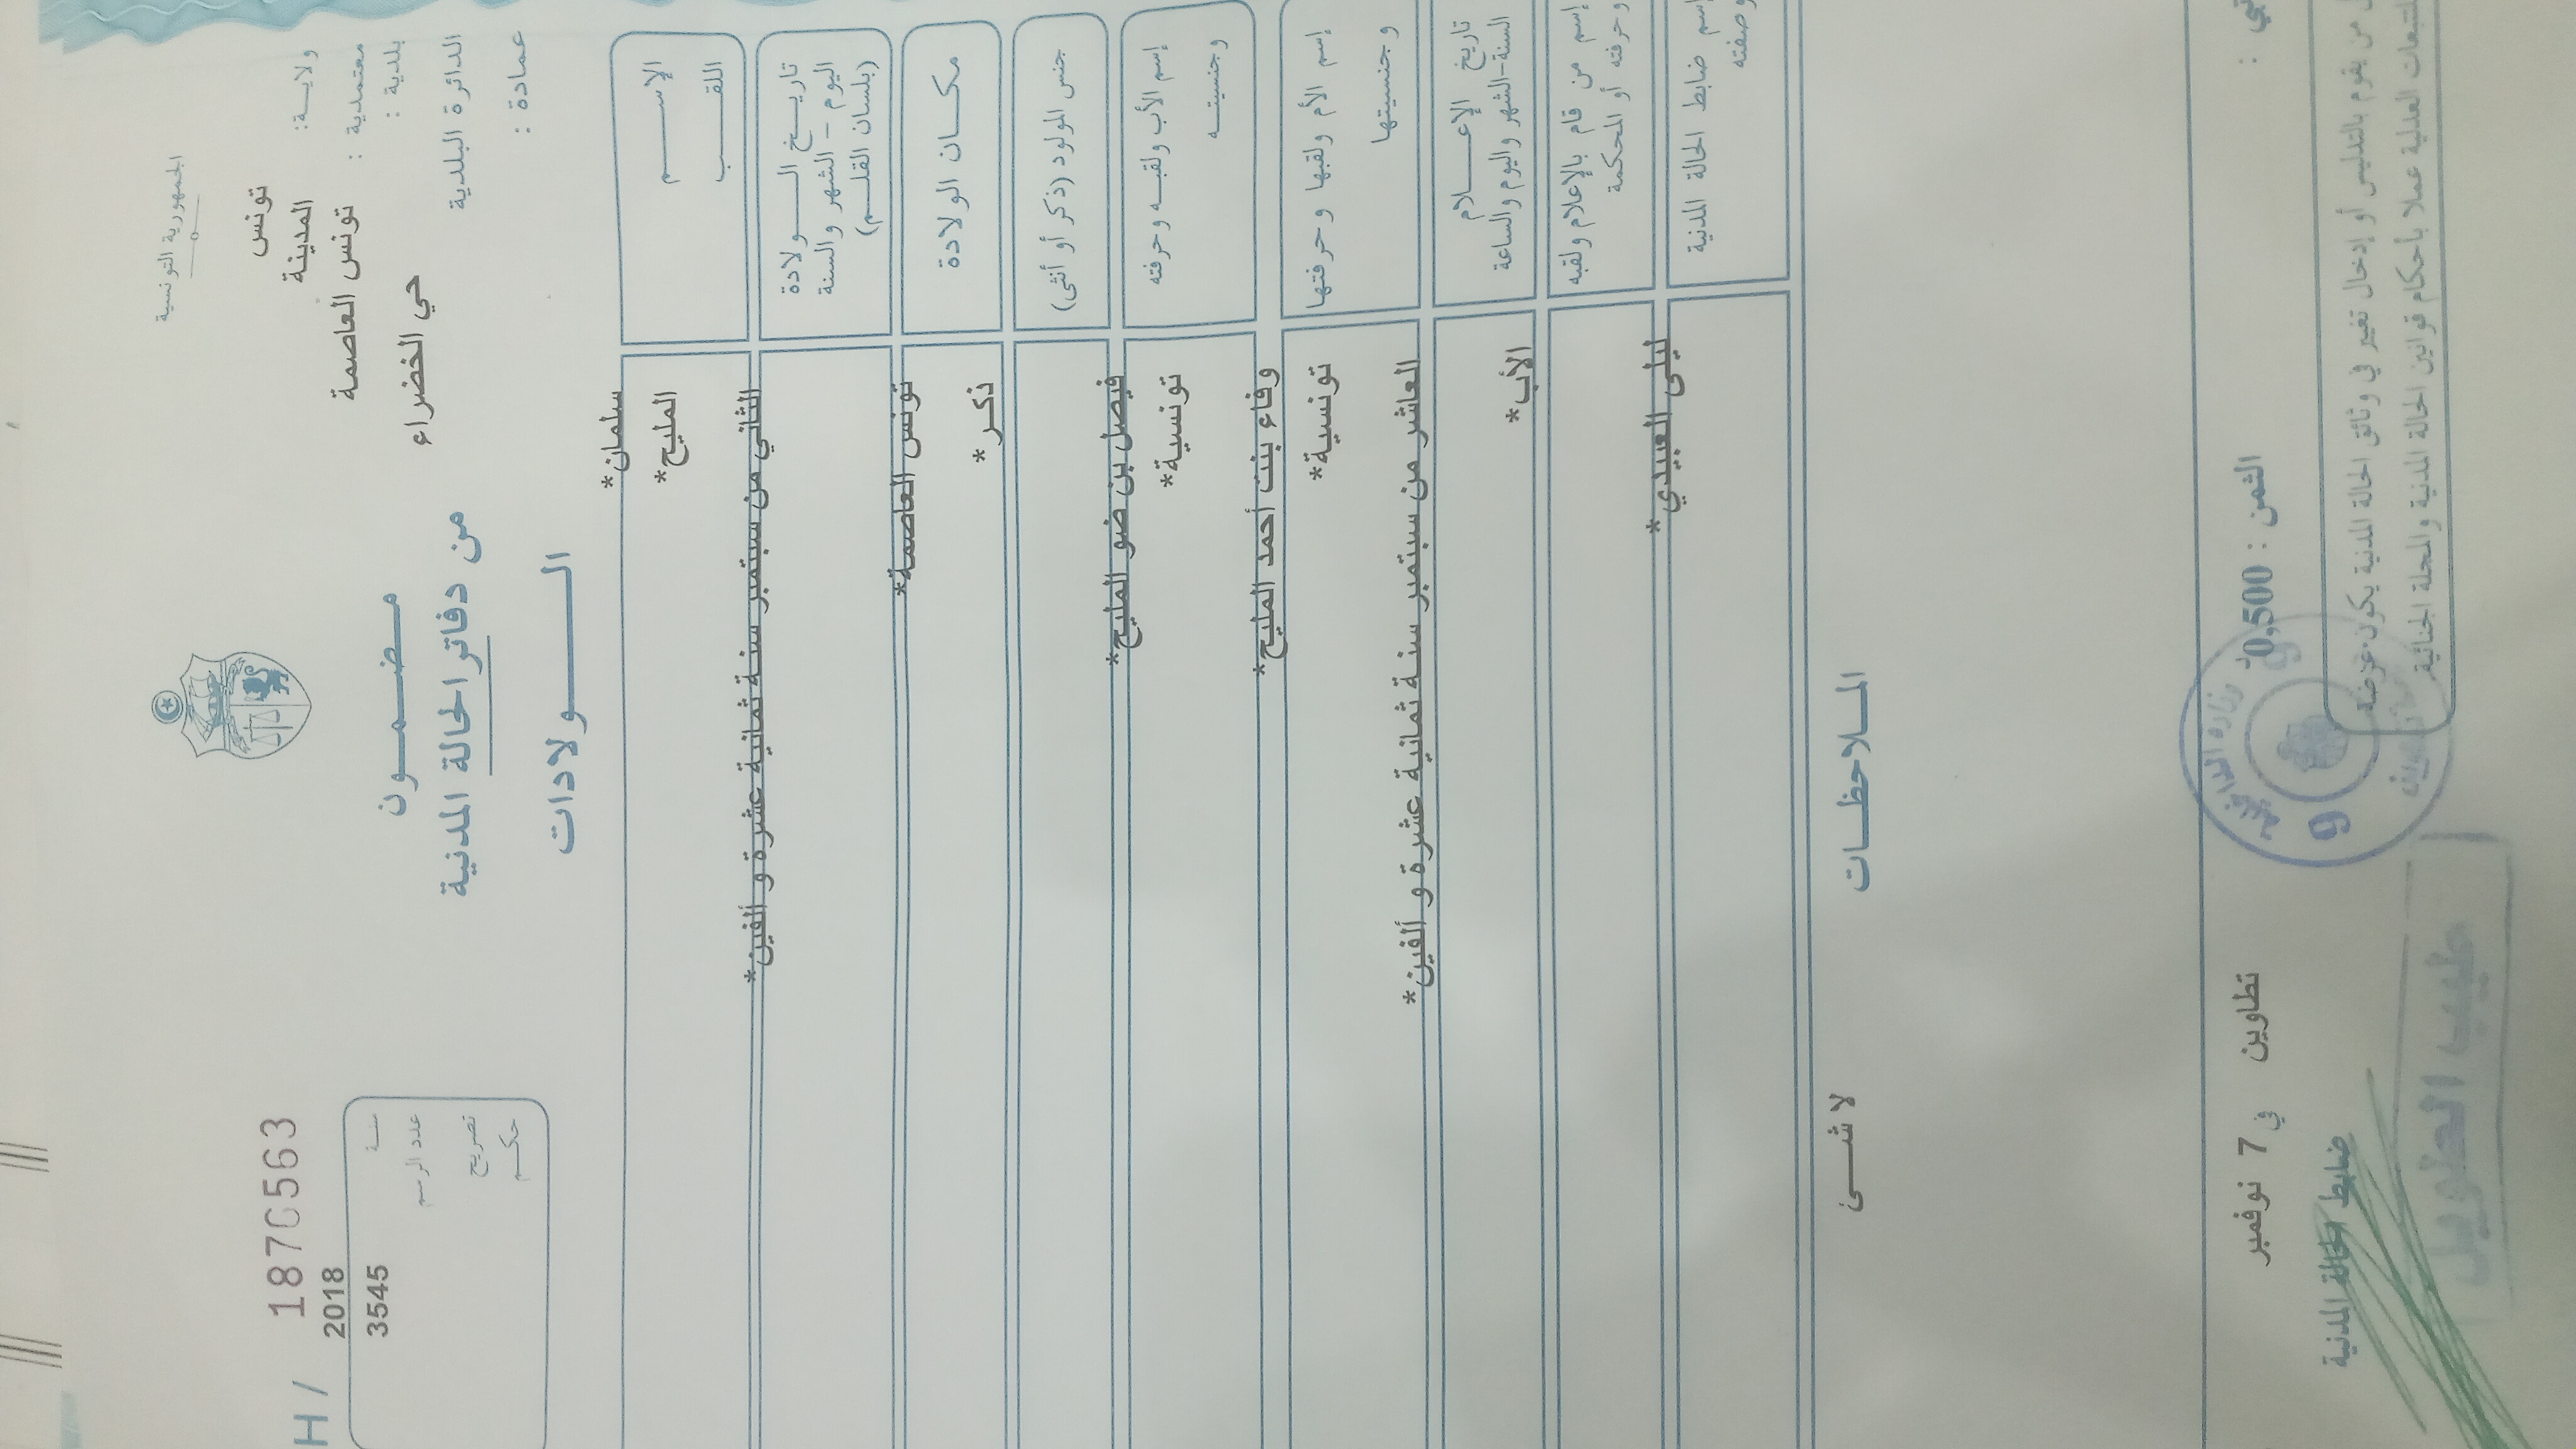 الجمهورية التونسية
ولايـــة: تونس
معتمدية : المدينة
بلدية : تونس العاصمة
الدائرة البلدية حي الخضراء
عمادة :
مـضـمـــون
من دفاتر الحالة المدنية
الـــــولادات
H / 187C563
سنـــة 2018
عدد الرسم 3545
تصريح
حكـــم
الإســـــم سلمان*
اللقـــــب المليح*
تاريـــخ الـــــولادة
اليوم - الشهر والسنة
(بلسان القلـــم)
الثاني من سبتمبر سنة ثمانية عشرة و ألفين*
مكـــان الولادة تونس العاصمة*
جنس المولود (ذكر أو أنثى) ذكر*
إسم الأب ولقبـــه وحرفته فيصل بن ضو المليح*
وجنسيتـــه تونسية*
إسم الأم ولقبها وحرفتها وفاء بنت أحمد المليح*
وجنسيتها تونسية*
تاريخ الإعـــــلام
السنة-الشهر واليوم والساعة
العاشر من سبتمبر سنة ثمانية عشرة و ألفين*
إسم من قام بالإعلام ولقبه
وحرفته أو المحكمة
الأب*
إسم ضابط الحالة المدنية
وصفته
ليلى العبيدي*
المـــلاحظـــات
لا شـــئ
الثمن : 0,500د
تطاوين في 7 نوفمبر
ضابط الحالة المدنية
من يقوم بالتدليس أو إدخال تغيير في وثائق الحالة المدنية يكون عرضة
للتبعات العدلية عملا بأحكام قوانين الحالة المدنية والمجلة الجنائية
وزارة الداخلية
9
طيب الطويل